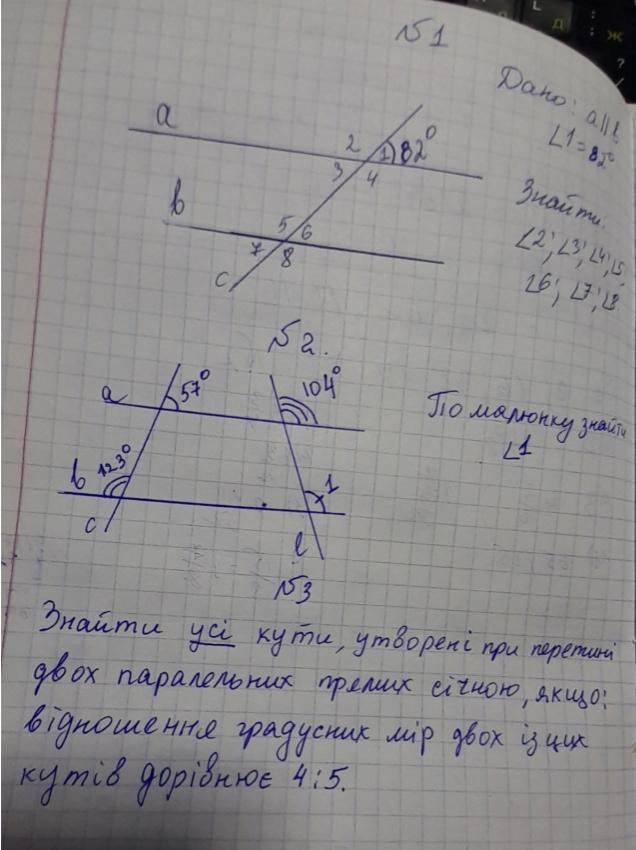 №1
Дано: a||b
∠1=82°
a
2 1 82°
3 4
Знайти:
b
∠2; ∠3; ∠4; ∠5
5 6
∠6; ∠7; ∠8
7 8
c
№2.
57° 104°
a
По малюнку знайти
∠1
123°
b 1
c
l
№3
Знайти усі кути, утворені при перетині
двох паралельних прямих січною, якщо:
відношення градусних мір двох із цих
кутів дорівнює 4:5.